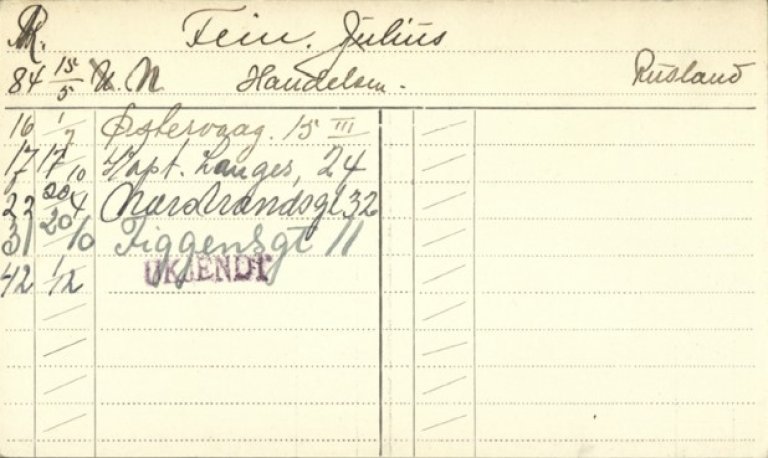 R. Fein. Julius
84 15/5 U. N. Handelsm. Rusland
16 1/7 Østervaag. 15 III
17 17/10 Kapt. Langes, 24
22 20/4 Nordstrandsgt 32
31 20/10 Figgensgt 11
42 1/12 UKJENDT